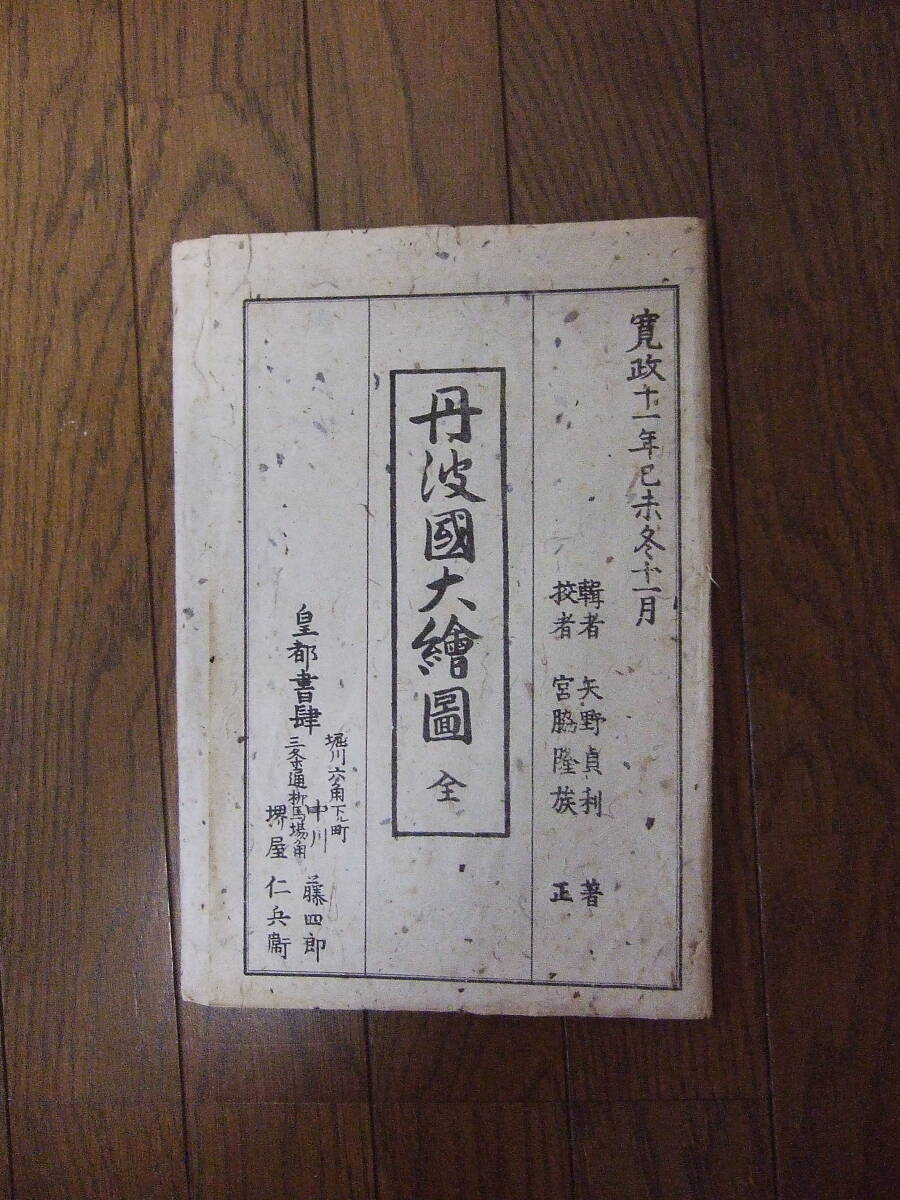 寛政十一年己未冬十一月
輯者 矢野貞利 著
挍者 宮脇隆族 正
丹波國大繪圖 全
皇都書肆
堀川六角下ル町
中川 藤四郎
三条通柳馬場角
堺屋 仁兵衞